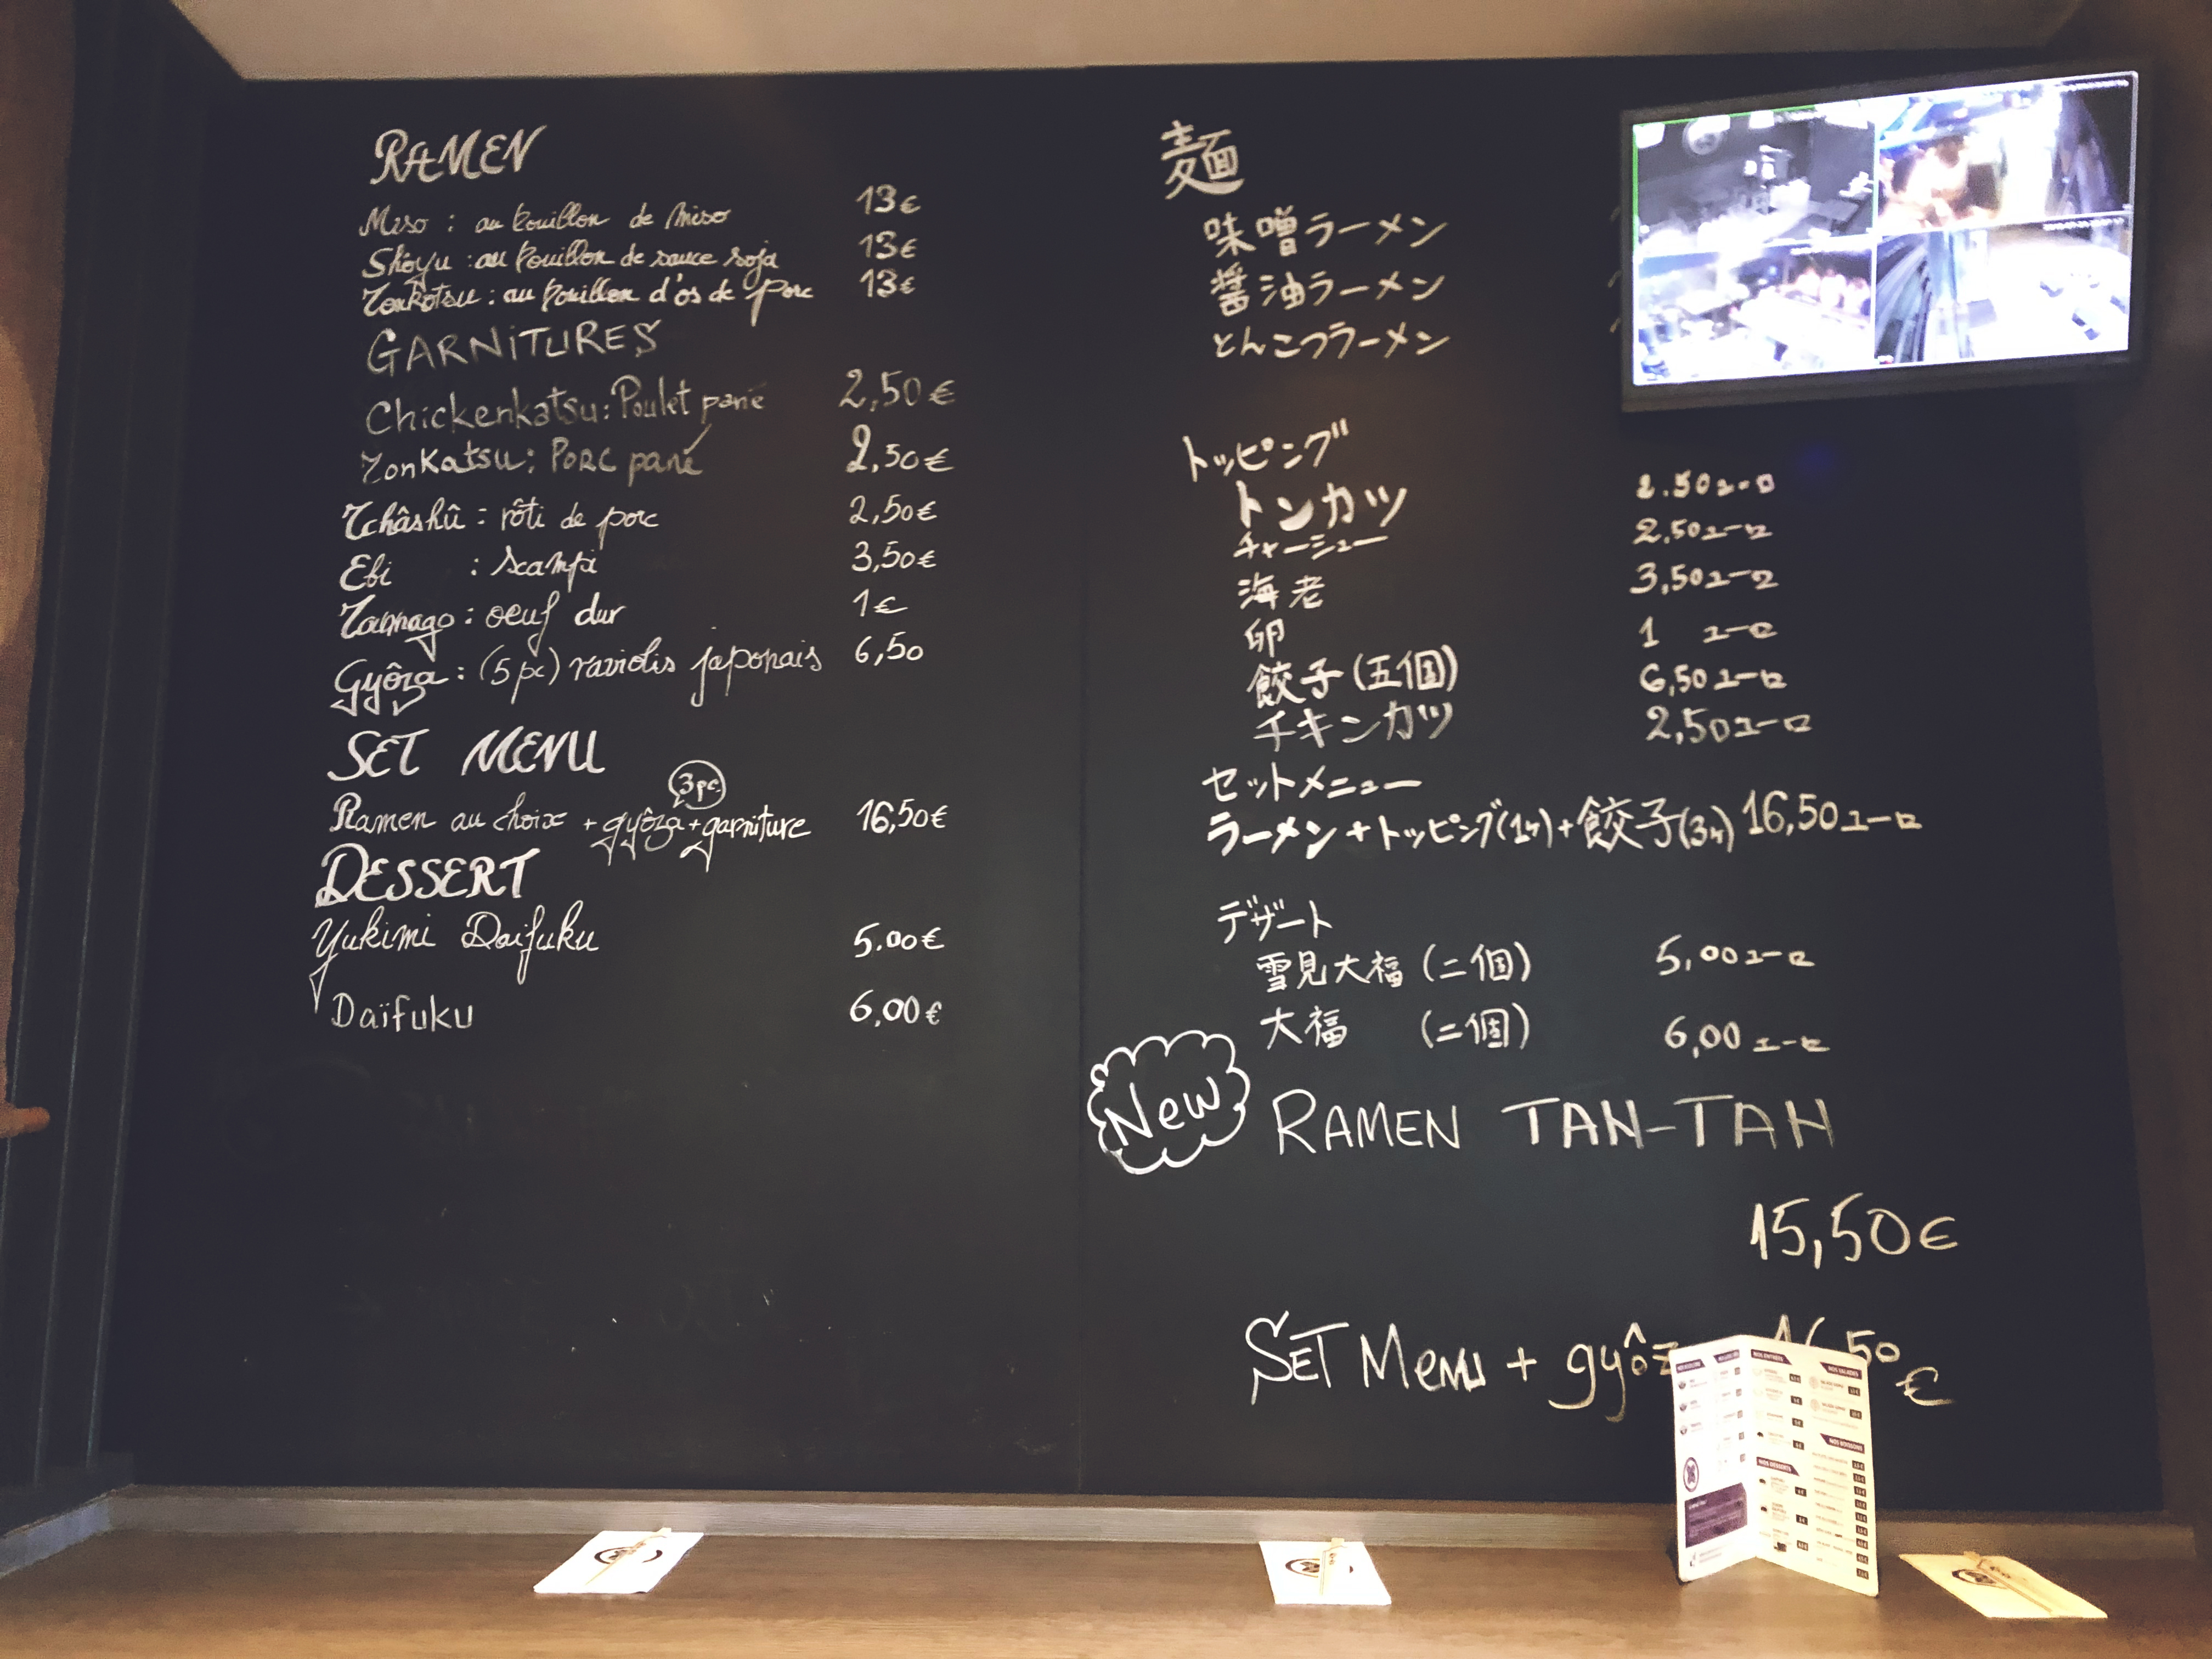 RAMEN
Miso : au bouillon de miso 13€
Shoyu : au bouillon de sauce soja 13€
Tonkotsu : au bouillon d'os de porc 13€
GARNITURES
Chickenkatsu : Poulet pané 2,50€
Tonkatsu : Porc pané 2,50€
Tchâshû : rôti de porc 2,50€
Ebi : scampi 3,50€
Tamago : oeuf dur 1€
Gyôza : (5 pc) raviolis japonais 6,50
SET MENU
3pc
Ramen au choix + gyôza + garniture 16,50€
DESSERT
Yukimi Daifuku 5.00€
Daïfuku 6,00€
麺
味噌ラーメン
醤油ラーメン
とんこつラーメン
トッピング
トンカツ 2.50ユーロ
チャーシュー 2,50ユーロ
海老 3,50ユーロ
卵 1 ユーロ
餃子(五個) 6,50ユーロ
チキンカツ 2,50ユーロ
セットメニュー
ラーメン+トッピング(1ケ)+餃子(3ケ) 16,50ユーロ
デザート
雪見大福(二個) 5,00ユーロ
大福 (二個) 6,00ユーロ
New RAMEN TAN-TAN
15,50€
SET MENU + 50 €
NOS ENTRÉES
NOS SALADES
NOS BOISSONS
NOS DESSERTS